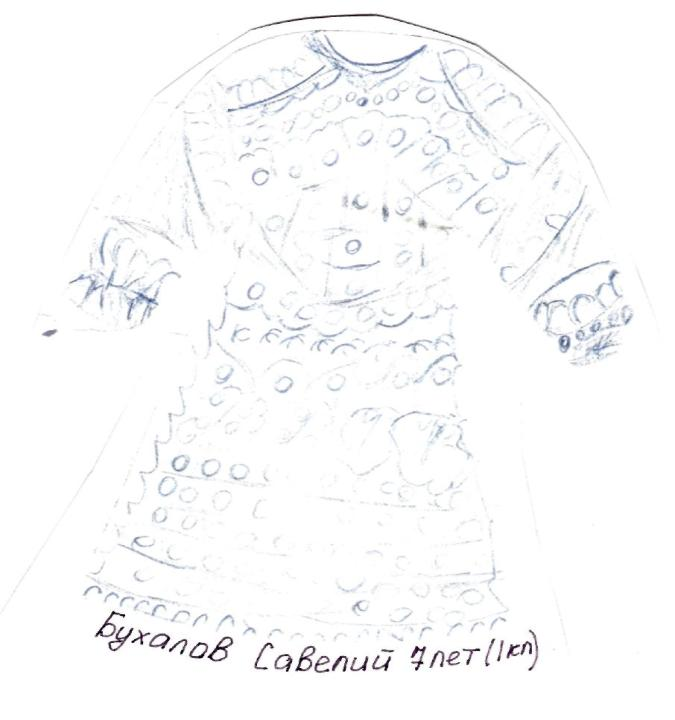 Бухалов Савелий 7лет (1кл)